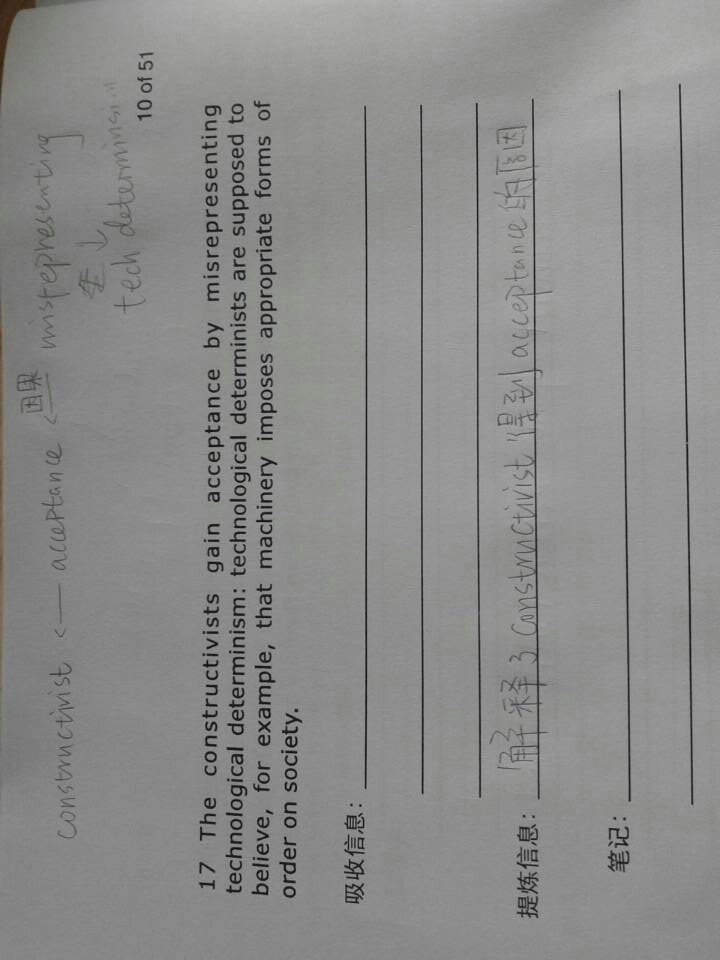 constructivist <— acceptance <— 因果 mistepresenting
↓
tech determinsim
10 of 51
17 The constructivists gain acceptance by misrepresenting
technological determinism: technological determinists are supposed to
believe, for example, that machinery imposes appropriate forms of
order on society.
吸收信息：
提炼信息：解释了constructivist得到acceptance的原因
笔记：